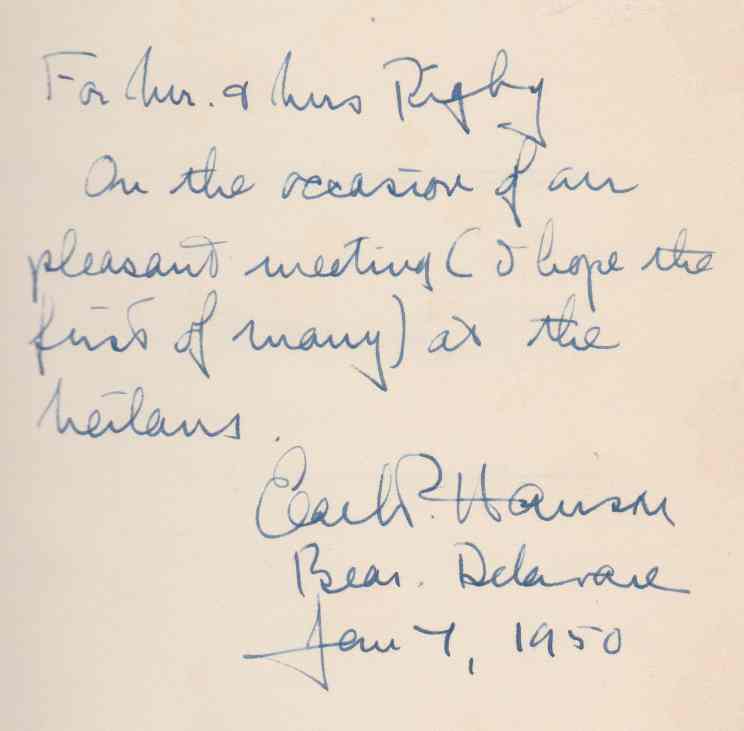 For Mr. & Mrs Rigby
On the occasion of an
pleasant meeting (I hope the
first of many) at the
Earl P. Hanson
Bear. Delaware
Jan 7, 1950